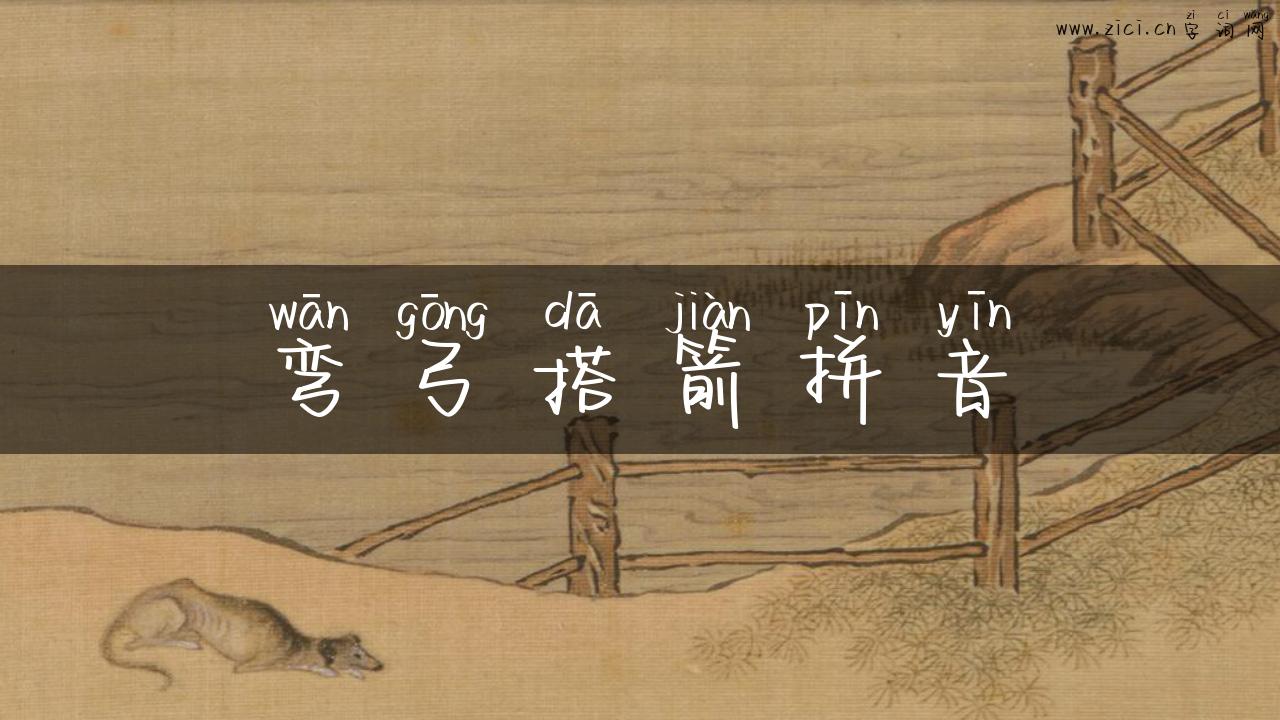 zi ci wang
www.zici.cn 字词网
wān gōng dā jiàn pīn yīn
弯弓搭箭拼音